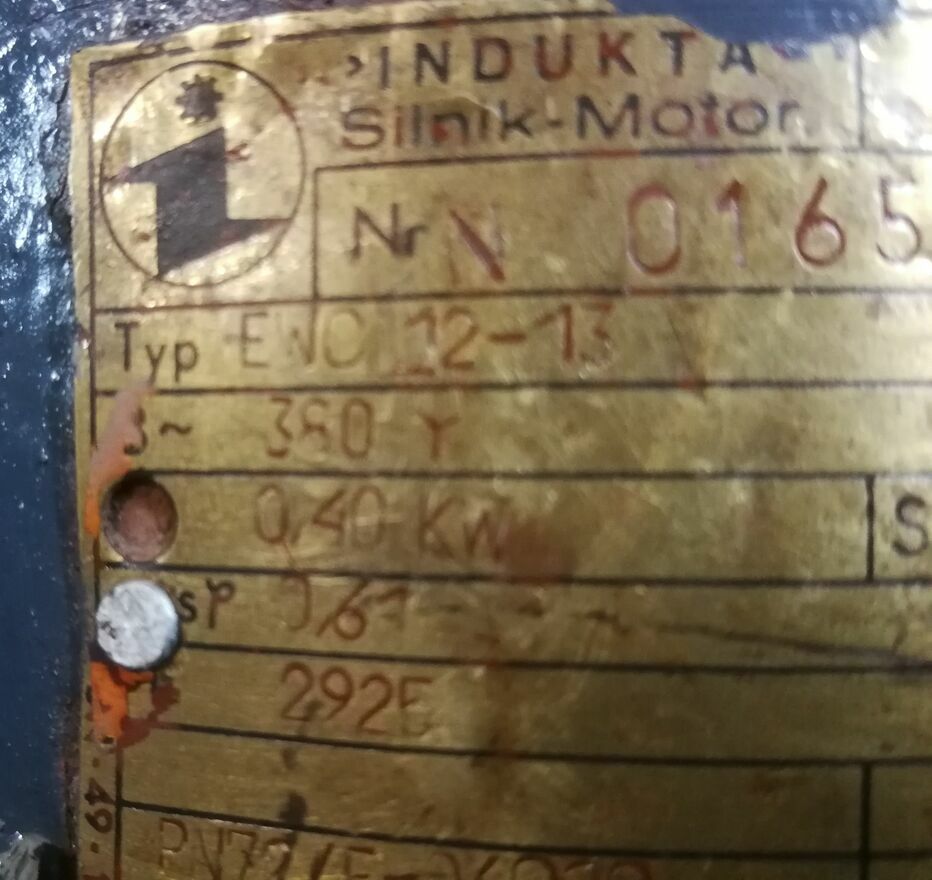 INDUKTA
Silnik-Motor
Nr 0165
Typ 12-13
3~ 380 Y
0,40 KW
S
0,61
2925
49